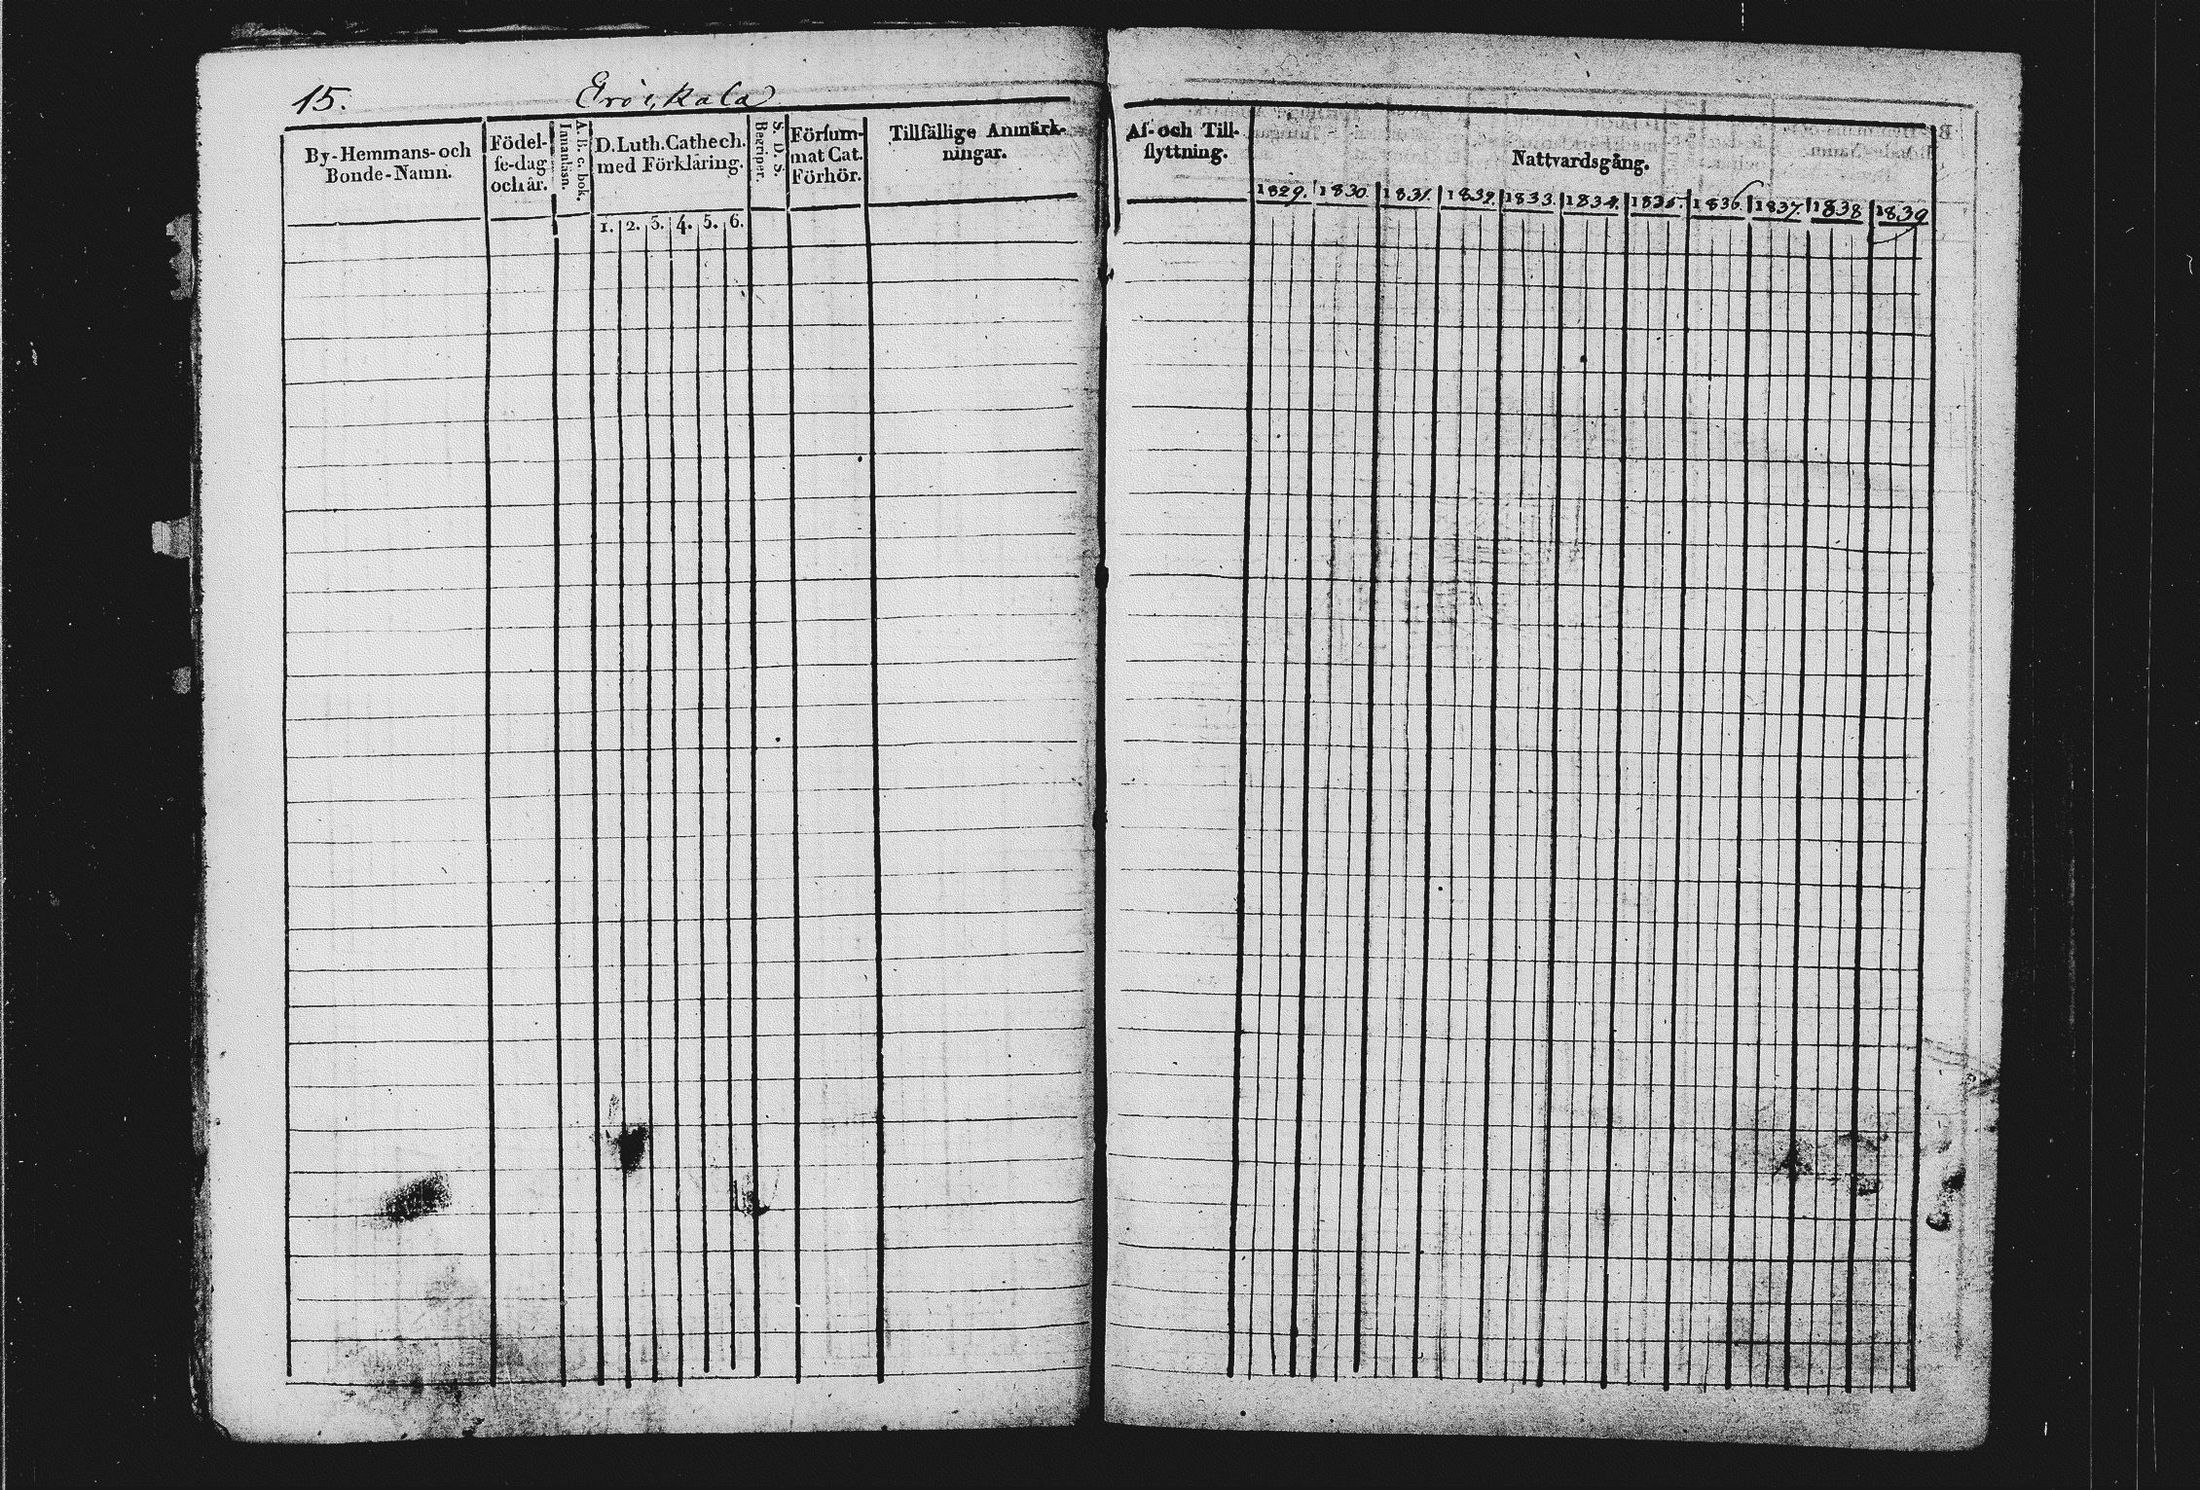 15.
By-Hemmans- och
Bonde-Namn.
Födel-
se-dag
och år.
A. B. c. bok.
Innanläsn.
D. Luth. Cathech.
med Förklaring.
1. 2. 3. 4. 5. 6.
S. D. S.
Begriper.
Försum-
mat Cat.
Förhör.
Tillfällige Anmärk-
ningar.
Af- och Till-
flyttning.
Nattvardsgång.
1829. 1830 1831. 1832. 1833. 1834. 1835. 1836. 1837. 1838 1839